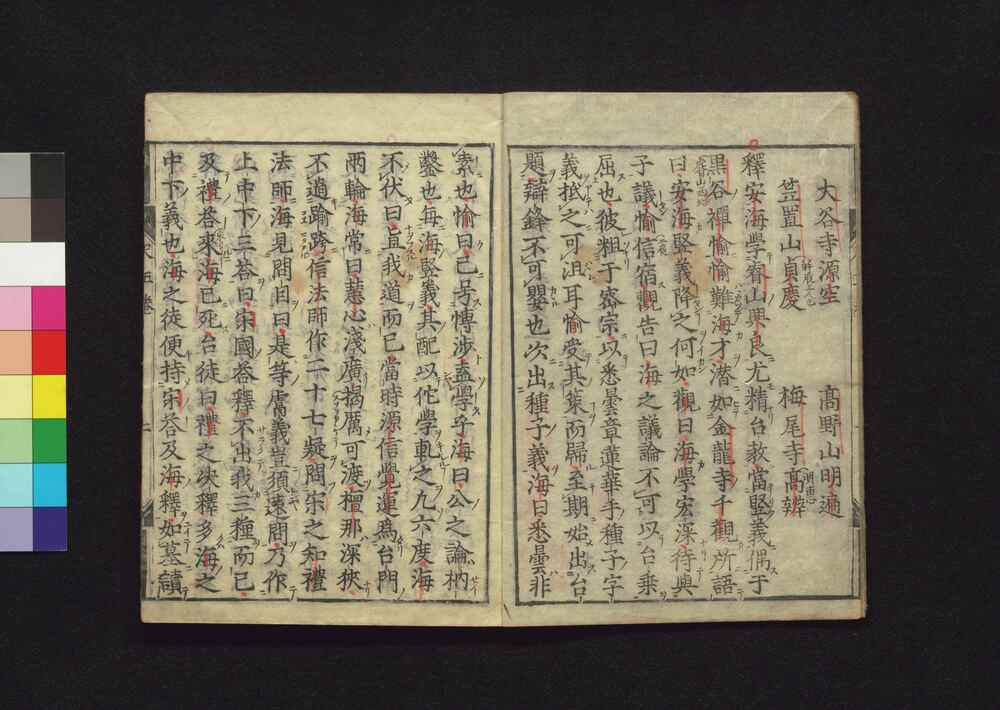 大谷寺源空　高野山明遍
笠置山貞慶　栂尾寺高辯
釋安海學脊山興良尤精台教當竪義偶于
黒谷禪愉愉難海才潜如金龍寺千觀所語
曰安海竪義降之何如觀曰海學宏深待與
子議愉信宿觀告曰海之議論不可以台乗
屈也彼粗于密宗以悉曇章蓮華手種子字
義拭之可沮耳愉受其策而歸至期始出台
題辯鋒不可嬰也次出種子義海曰悉曇非
素也愉曰已号慱涉盍學乎海曰公之論枘
鑿也毎海竪義其配以佗學軋之九六度海
不伏曰盲我道而已當時源信覺運為台門
兩輪海常曰慧心淺廣揭厲可渡檀那深狹
不過踰跨信法師作二十七疑問宋之知禮
法師海見問目曰是等膚義豈須遠問乃作
上中下三荅曰宋國荅釋不出我三種而已
及禮荅來海已死台徒曰禮之决釋多海之
中下義也海之徒便持宋荅及海釋如墓讀